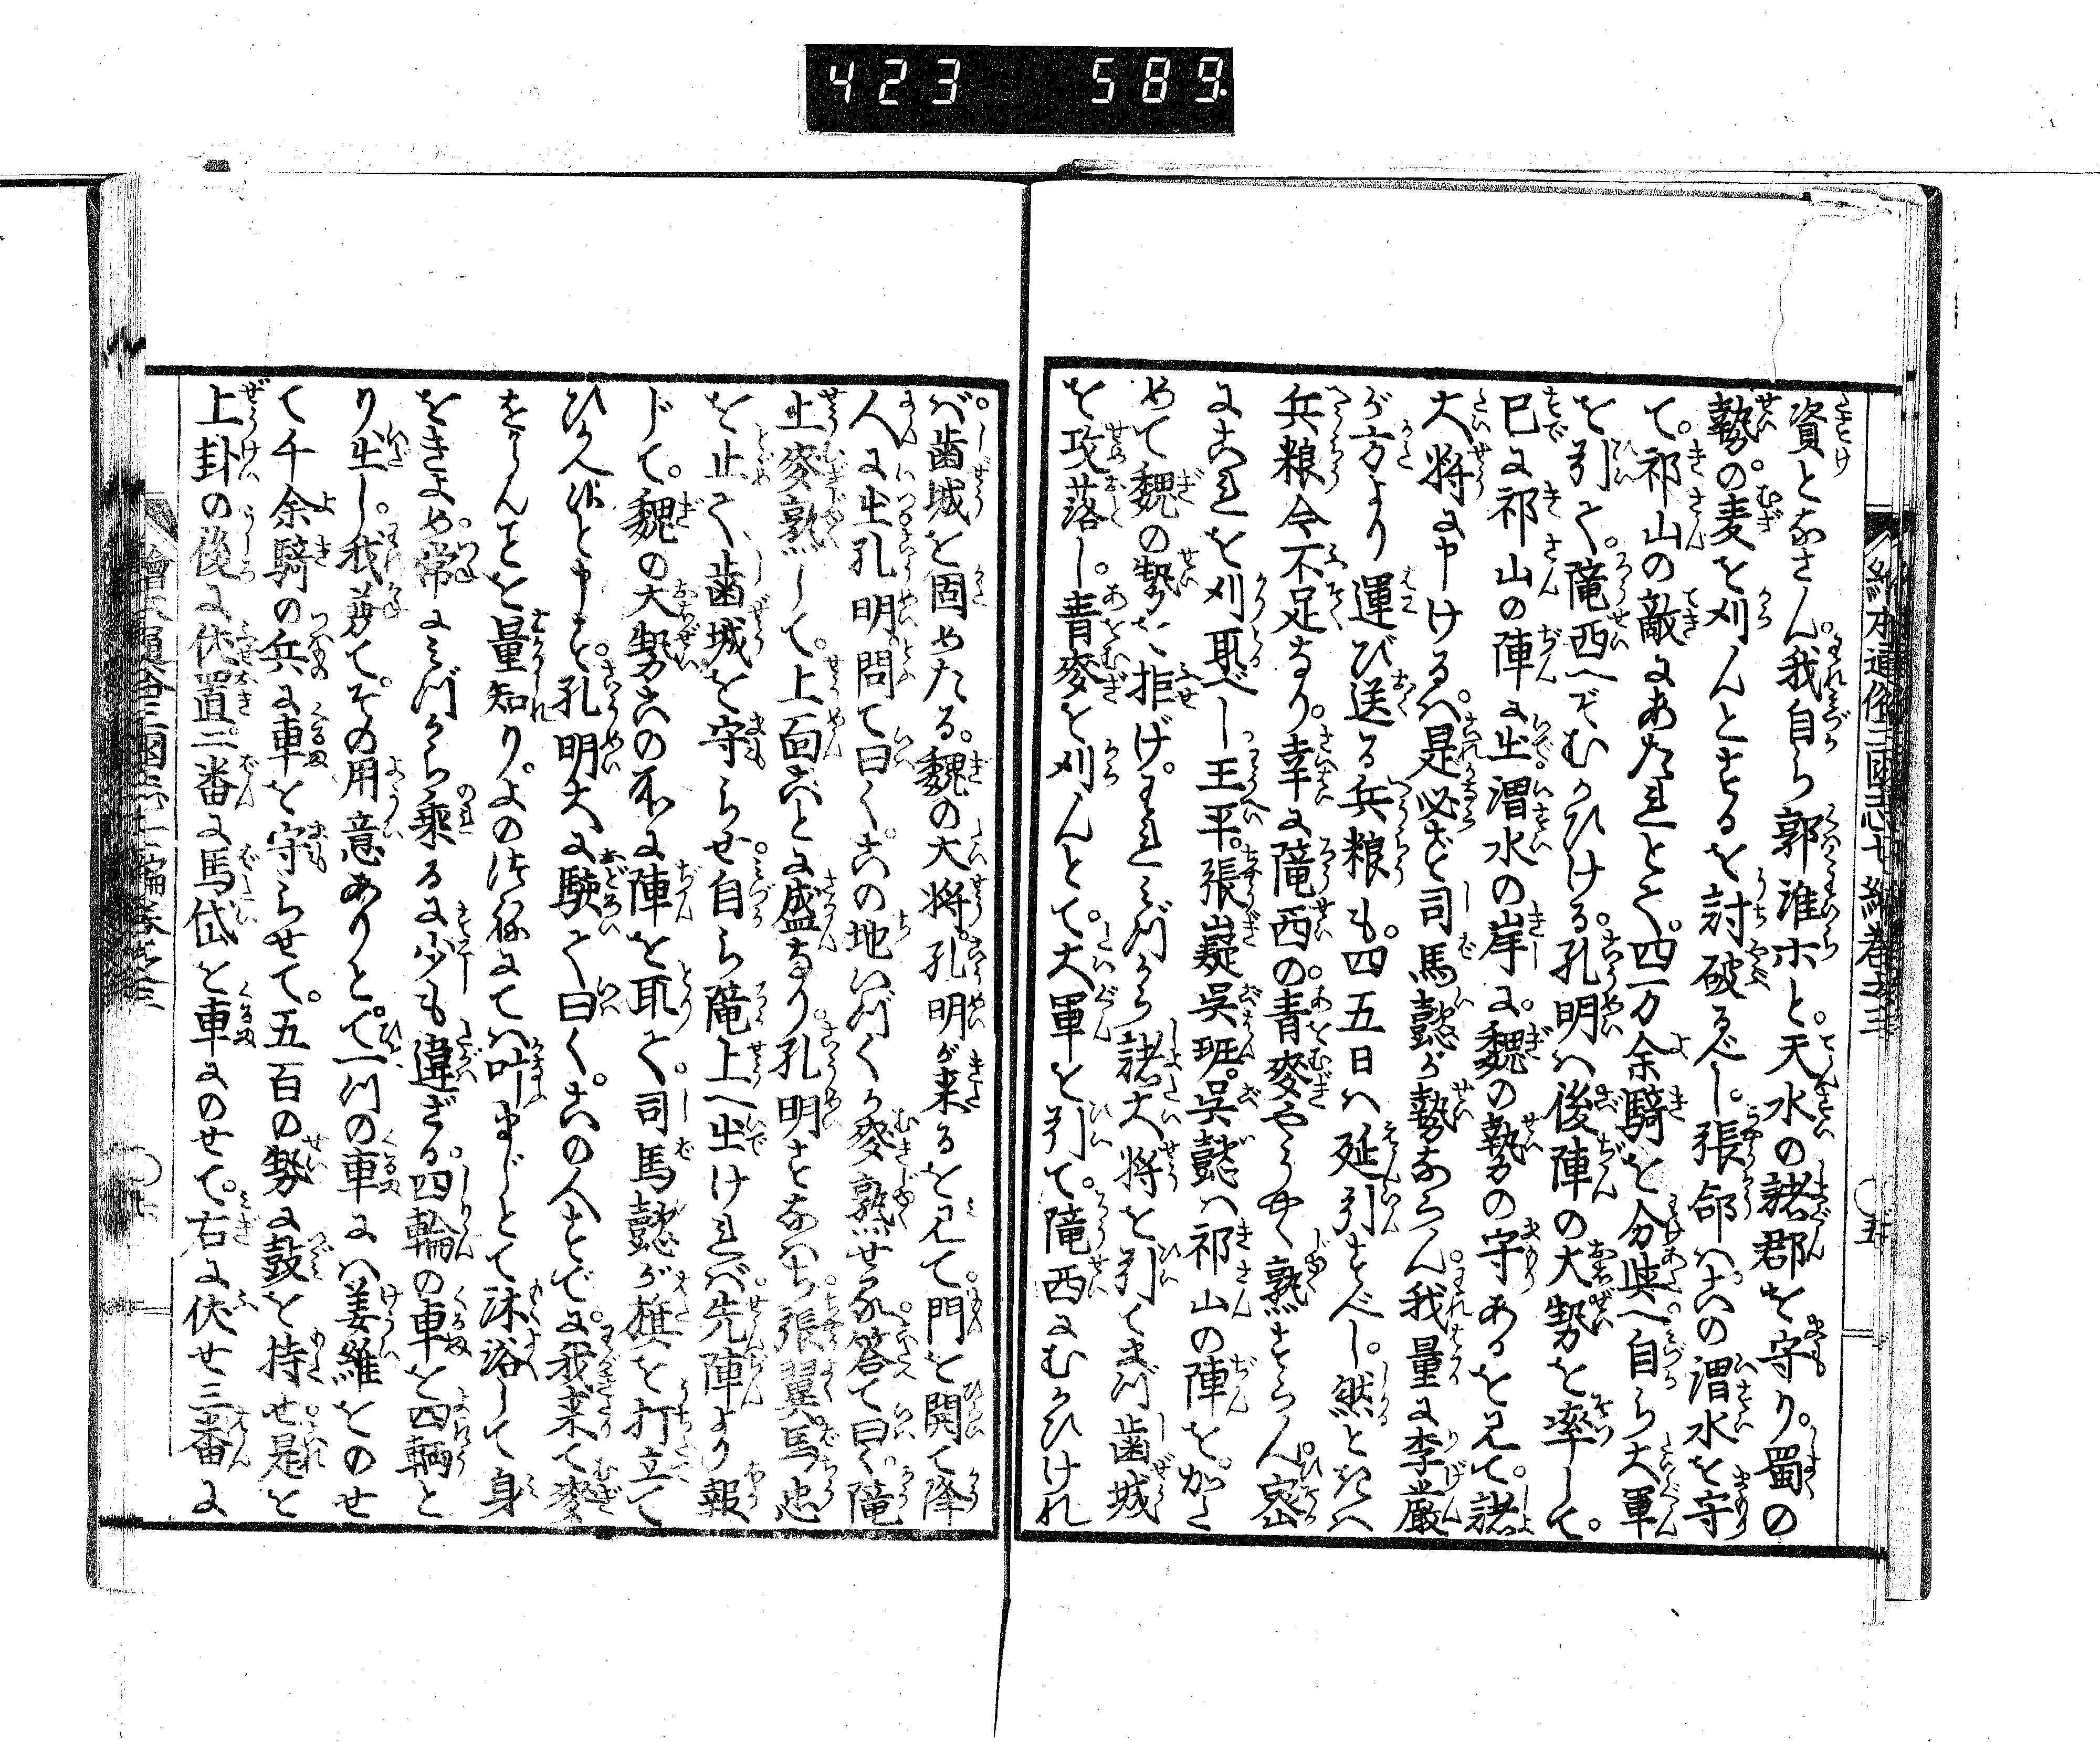 423 589.
絵本通俗三國志七編巻之三 ○五
資となさん。我自ら郭淮ホと。天水の諸郡を守り。蜀の
勢の。麦を刈んとするを討破るべし。張郃ハ此の渭水を守
て。祁山の敵にあたれとて。四万余騎を分與へ。自ら大軍
を引て。隴西へぞむかひける。孔明ハ後陣の大勢を率して。
已に祁山の陣に出。渭水の岸に。魏の勢の守あるを見て。諸
大将に申けるハ。是必ず司馬懿が勢ならん。我量に李嚴
が方より運び送る兵粮も。四五日ハ延引すべし。然ときハ
兵粮令不足なり。幸に隴西の。青麥やうやく熟すらん。密
に是を刈取べし王平。張嶷呉班。呉懿ハ祁山の陣を。かく
めて魏の勢を拒げ。われみづから諸大将を引てまづ歯城
を攻落し。青麥を刈んとて。大軍を引て。隴西にむかひけれ
ば。歯城を固めたる。魏の大将。孔明が来るを見て。門を開て降
人に出孔明問て曰く。此の地いづくか麥熟せる。答て曰く。隴
上麥熟して。上面ことに盛なり。孔明すなわち張翼。馬忠
を止て。歯城を守らせ。自ら隴上へ出けれバ。先陣より報
じて。魏の大勢此の所に陣を取て。司馬懿が旗を打立て
ひかへ候と申す。孔明大に駭て曰く。此の人すでに。我来て麥
をからんことを量知り。よの次にてハ叶まじとて沐浴して身
をきよめ。常にみづから乗るに少も違ざる。四輪の車を四輌と
り出し。我兼てその用意ありと。て一つの車にハ姜維をのせ
て千余騎の兵に車を守らせて。五百の勢に鼓を持せ是を
上卦の後に伏置。二番に馬岱を車にのせて。右に伏せ三番に